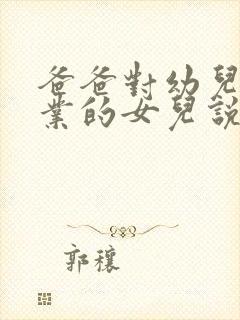 爸爸對幼兒
業的女兒說
郭穰